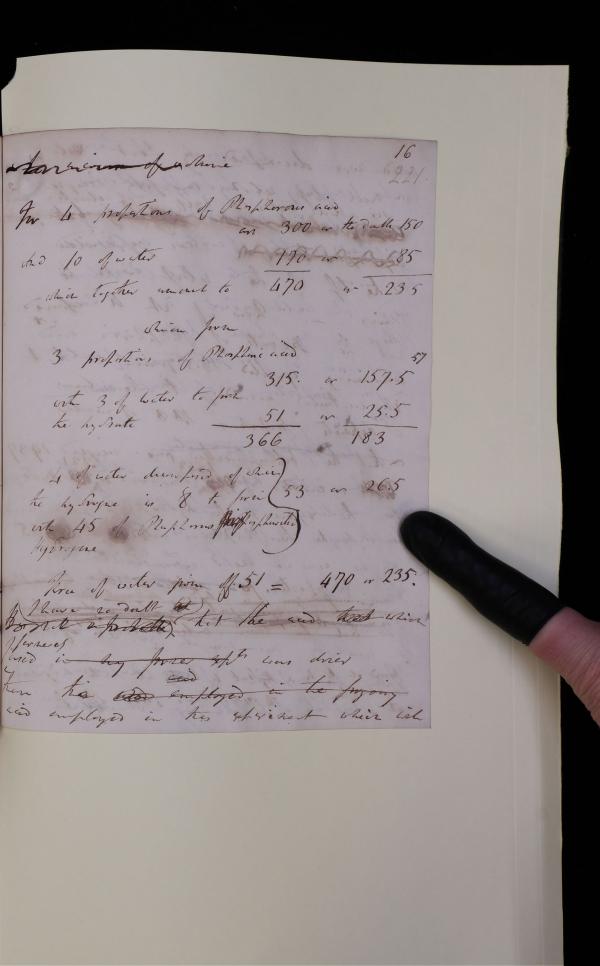 16
221.
of
For 4 proportions of Phosphorous acid
are 300 or the double 150
And 10 of water 170 or 85
which together amount to 470 or 235
which form
3 proportions of Phosphoric acid 57
315. or 157.5
with 3 of water to form
the hydrate 51 or 25.5
366 183
4 of water decomposed of which
the hydrogene is 8 to form 53 or 26.5
with 45 of Phosphorus
hydrogene
of water given off 51 = 470 or 235.
I have no doubt
that the acid that which
used in my former expts was drier
than the acid employed in the
acid employed in this experiment which